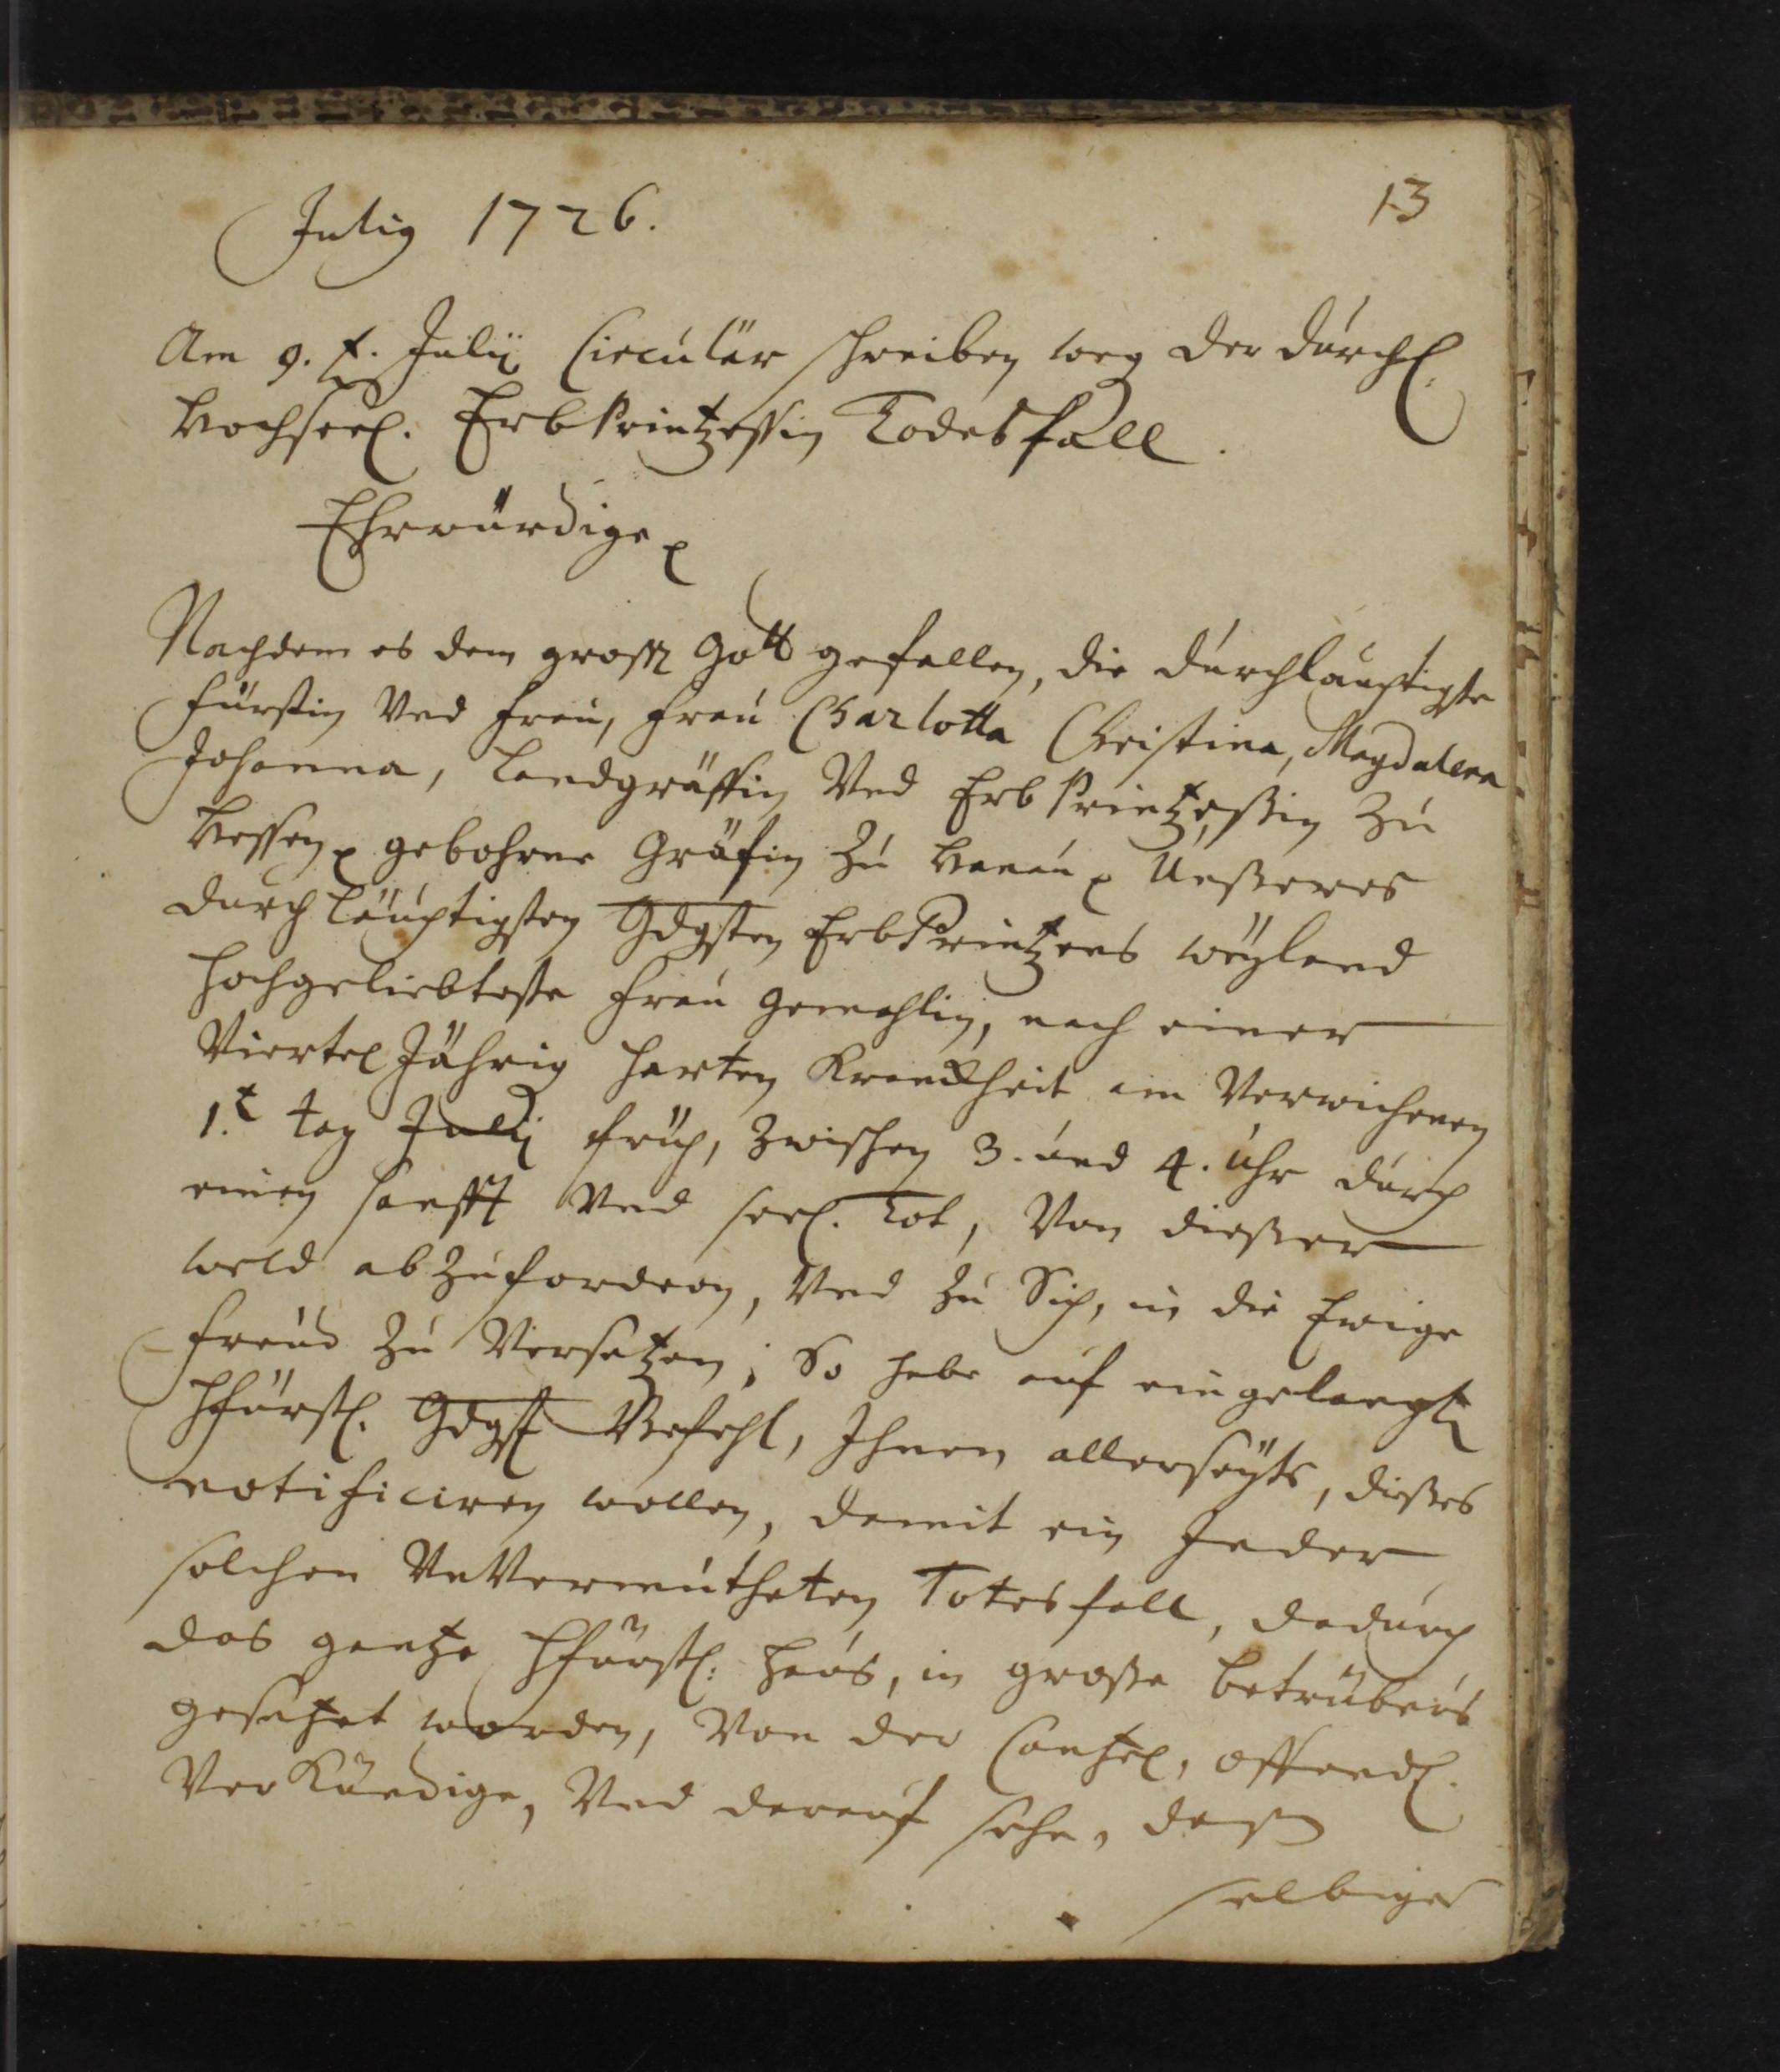 13
Julig 1726.
Am 9. t. Julij Circulär schreiben weg der Durchl.
Hochseel. Erb Printzessin Todesfall.
Ehrwürdige
Nachdem es dem groß Gott gefallen, die durchläuchtigste
Fürstin Und Frau, Frau Charlotta Christina, Magdalena
Johanna, Landgräffin Und Erb Printzeßin zu
Hessen gebohrne Gräfin zu Hanau Unßeres
durchläuchtigsten Gdgsten Erb Printzens weyland
hochgeliebteste Frau Gemahlin, nach einer
Viertel Jährig harten Kranckheit am Verwichenen
1.t tag Julij früh, zwischen 3. und 4. Uhr durch
einen sanfft Und seel. Tot, Von dießer
weld abzufordern, Und zu Sich, in die Ewige
Freud zu Versetzen; So habe auf eingelangt
Hfürstl. Gdgst Befehl, Ihnen allerseyts, dießes
notificiren wollen, damit ein Jeder
solchen UnVermutheten Totesfall, dadurch
das gantze Hfürstl: Haus, in große betrübnis
gesetzet worden, Von der Cantzel, offendl.
Verkündige, Und darauf sehe, daß
selbiger